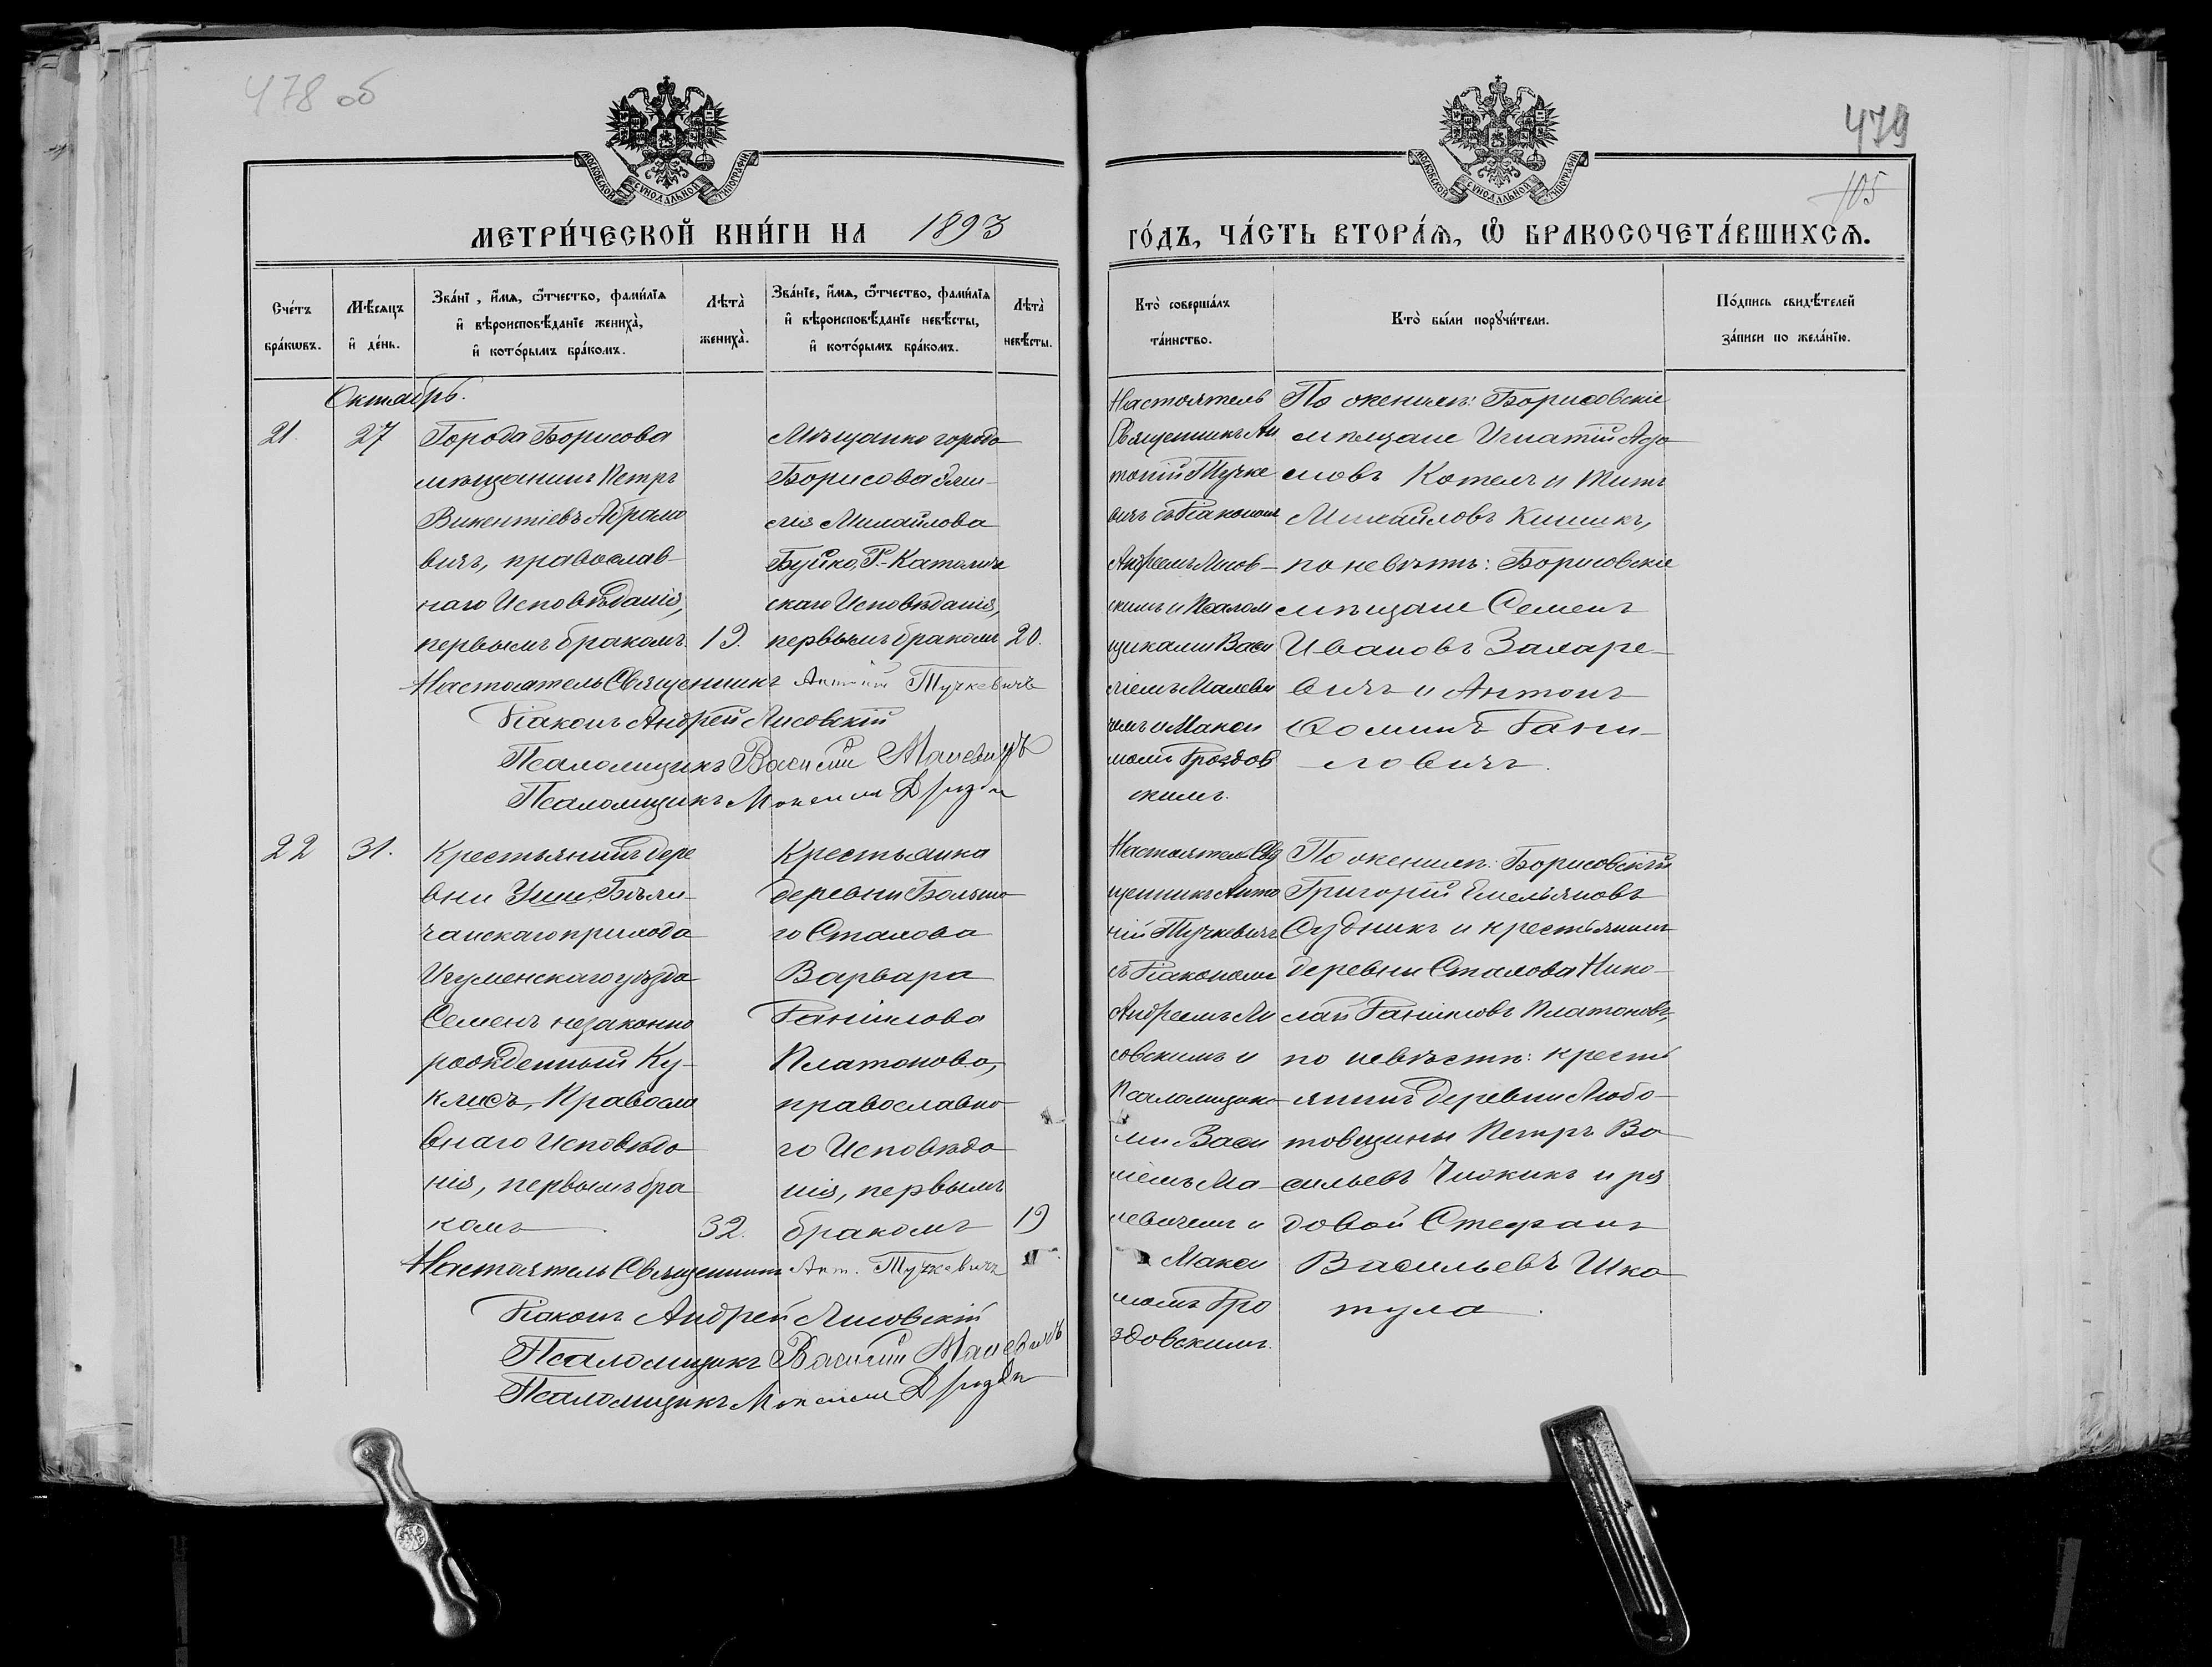 478 об
МОСКОВСКОЙ СѴНОДАЛЬНОЙ ТИПОГРАФІИ
МЕТРИ́ЧЕСКОЙ КНИ́ГИ НА 1893
Сче́тъ бра́кѡвъ.
Мѣ́сяцъ и҆ де́нь.
Зва́нї, и҆́мѧ, ѻ҆́тчество, фами́лїѧ
и҆ вѣроисповѣ́данїе жениха̀,
и҆ кото́рымъ бра́комъ.
Лѣта̀ жениха̀.
Зва́нїе, и҆́мѧ, ѻ҆́тчество, фами́лїѧ
и҆ вѣроисповѣ́данїе невѣ́сты,
и҆ кото́рымъ бра́комъ.
Лѣта̀ невѣ́сты.
Октябрь.
21. 27
Города Борисова
мѣщанинъ Петръ
Викентіевъ Абрамо
вичъ, православ-
наго Исповѣданія,
первымъ бракомъ. 19.
Мѣщанка города
Борисова
Михайлова
Буйко, Р.-Католиче
скаго Исповѣданія,
первымъ бракомъ 20.
Настоятель Священникъ Антоній Тучкевичъ
Діаконъ Андрей Лисовскій
Псаломщикъ Василій Малевичъ
Псаломщикъ Максимъ
22 31.
Крестьянинъ дере
вни Уши, Бѣли-
чанскаго прихода
Игуменскаго уѣзда
Семенъ незаконно
рожденный Ку-
клисъ, Правосла
внаго Исповѣда
нія, первымъ бра
комъ. 32.
Крестьянка
деревни Больша
го Стахова
Варвара
Данилова
Платонова,
православна
го Исповѣда
нія, первымъ
бракомъ 19
Настоятель Священникъ Ант. Тучкевичъ
Діаконъ Андрей Лисовскій
Псаломщикъ Василій Малевичъ
Псаломщикъ Максимъ
479
105
МОСКОВСКОЙ СѴНОДАЛЬНОЙ ТИПОГРАФІИ
ГО́ДЪ, ЧА́СТЬ ВТОРА́Ѧ, Ѽ БРАКОСОЧЕТА́ВШИХСѦ.
Кто̀ соверша́лъ
та́инство.
Кто̀ бы́ли порꙋчи́тели.
По́дпись свидѣ́телей
за́писи по жела́нїю.
Настоятель
Священникъ Ан
тоній Тучке
вичъ съ Діакономъ
Андреемъ Лисов-
скимъ и Псалом
щиками Васи
ліемъ Малеви
чемъ и Макси
момъ Гроздов
скимъ.
По женихѣ: Борисовскіе
мѣщане Игнатій Ада
мовъ Котелъ и Титъ
Михайловъ Кишикъ,
по невѣстѣ: Борисовскіе
мѣщане Семенъ
Ивановъ Захаре-
вичъ и Антонъ
Ѳоминъ Дани-
ловичъ.
Настоятель Свя
щенникъ Анто
ній Тучкевичъ
съ Діакономъ
Андреемъ Ли
совскимъ и
Псаломщика-
ми Васи
ліемъ Ма-
левичемъ и
Макси
момъ Гро
здовскимъ.
По женихѣ: Борисовскій
Григорій Емельяновъ
Судникъ и крестьянинъ
деревни Стахова Нико-
лай Даниловъ Платоновъ,
по невѣстѣ: кресть
янинъ деревни Любо-
товщины Петръ Ва
сильевъ Чижикъ и ря
довой Стефанъ
Васильевъ Шка
тула.